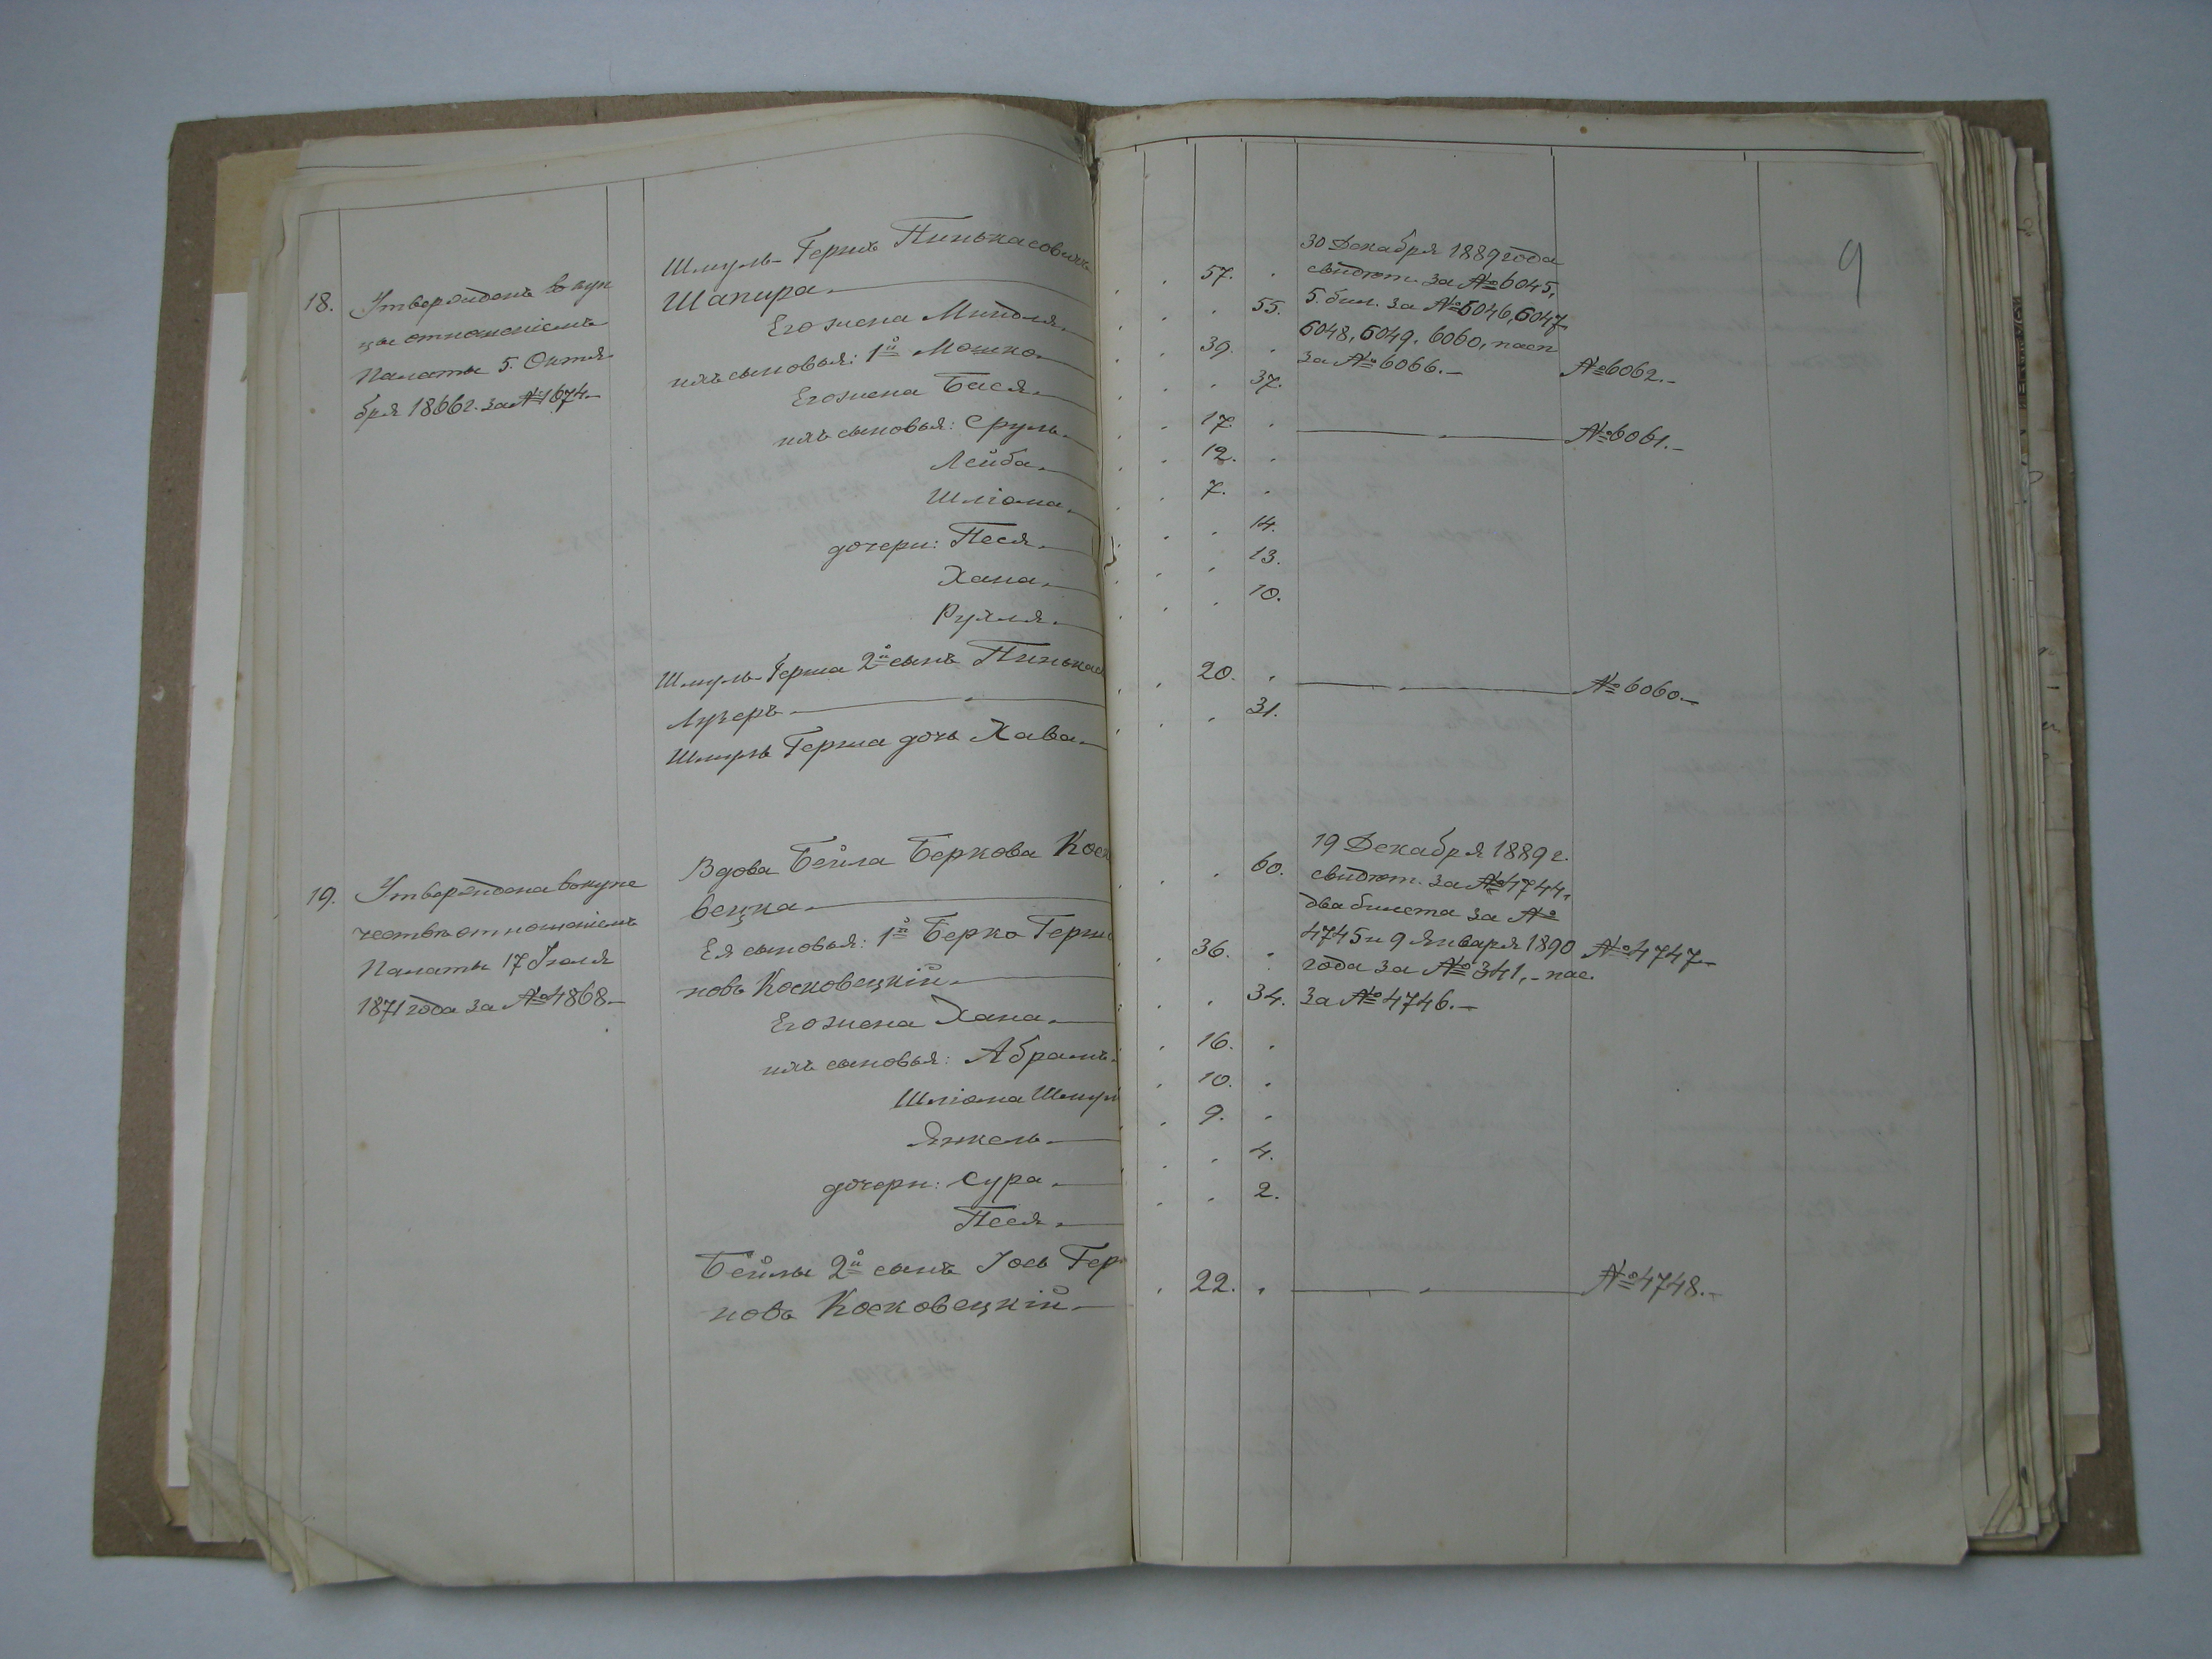 9
18. Утвержденъ въ куп
цы отношеніемъ
Палаты 5. Октя
бря 1866 г. за № 1674.
Шмуль-Гершъ Пинькасовичъ
Шапира. 57.
Его жена Миндля. 55.
ихъ сыновья: 1й Мошко. 39.
Его жена Бася. 37.
ихъ сыновья: Сруль. 17.
Лейба. 12.
Шліома. 7.
дочери: Песя. 14.
Хана. 13.
Рухля. 10.
Шмуль-Герша 2й сынъ Пинькас
Лузеръ. 20.
Шмуль Герша дочь Хава. 31.
30 Декабря 1889 года
свидѣт. за № 6045,
5. бил. за № 6046, 6047
6048, 6049. 6060, пасп
за № 6066.
№ 6062.
№ 6061.
№ 6060.
19. Утверждена въ купе
чествѣ отношеніемъ
Палаты 17 Іюля
1871 года за № 4868.
Вдова Бейла Беркова Коск
вецка. 60.
Ея сыновья: 1й Берко Герш
новъ Косковецкій. 36.
Его жена Хана. 34.
ихъ сыновья: Абрамъ. 16.
Шліома Шмул 10.
Янкель. 9.
дочери: Сура. 4.
Песя. 2.
Бейлы 2й сынъ Іось Гер
новъ Косковецкій. 22.
19 Декабря 1889 г.
свидѣт. за № 4744,
два билета за №
4745 и 9 Января 1890
года за № 341, пас.
за № 4746.
№ 4747
№ 4748.